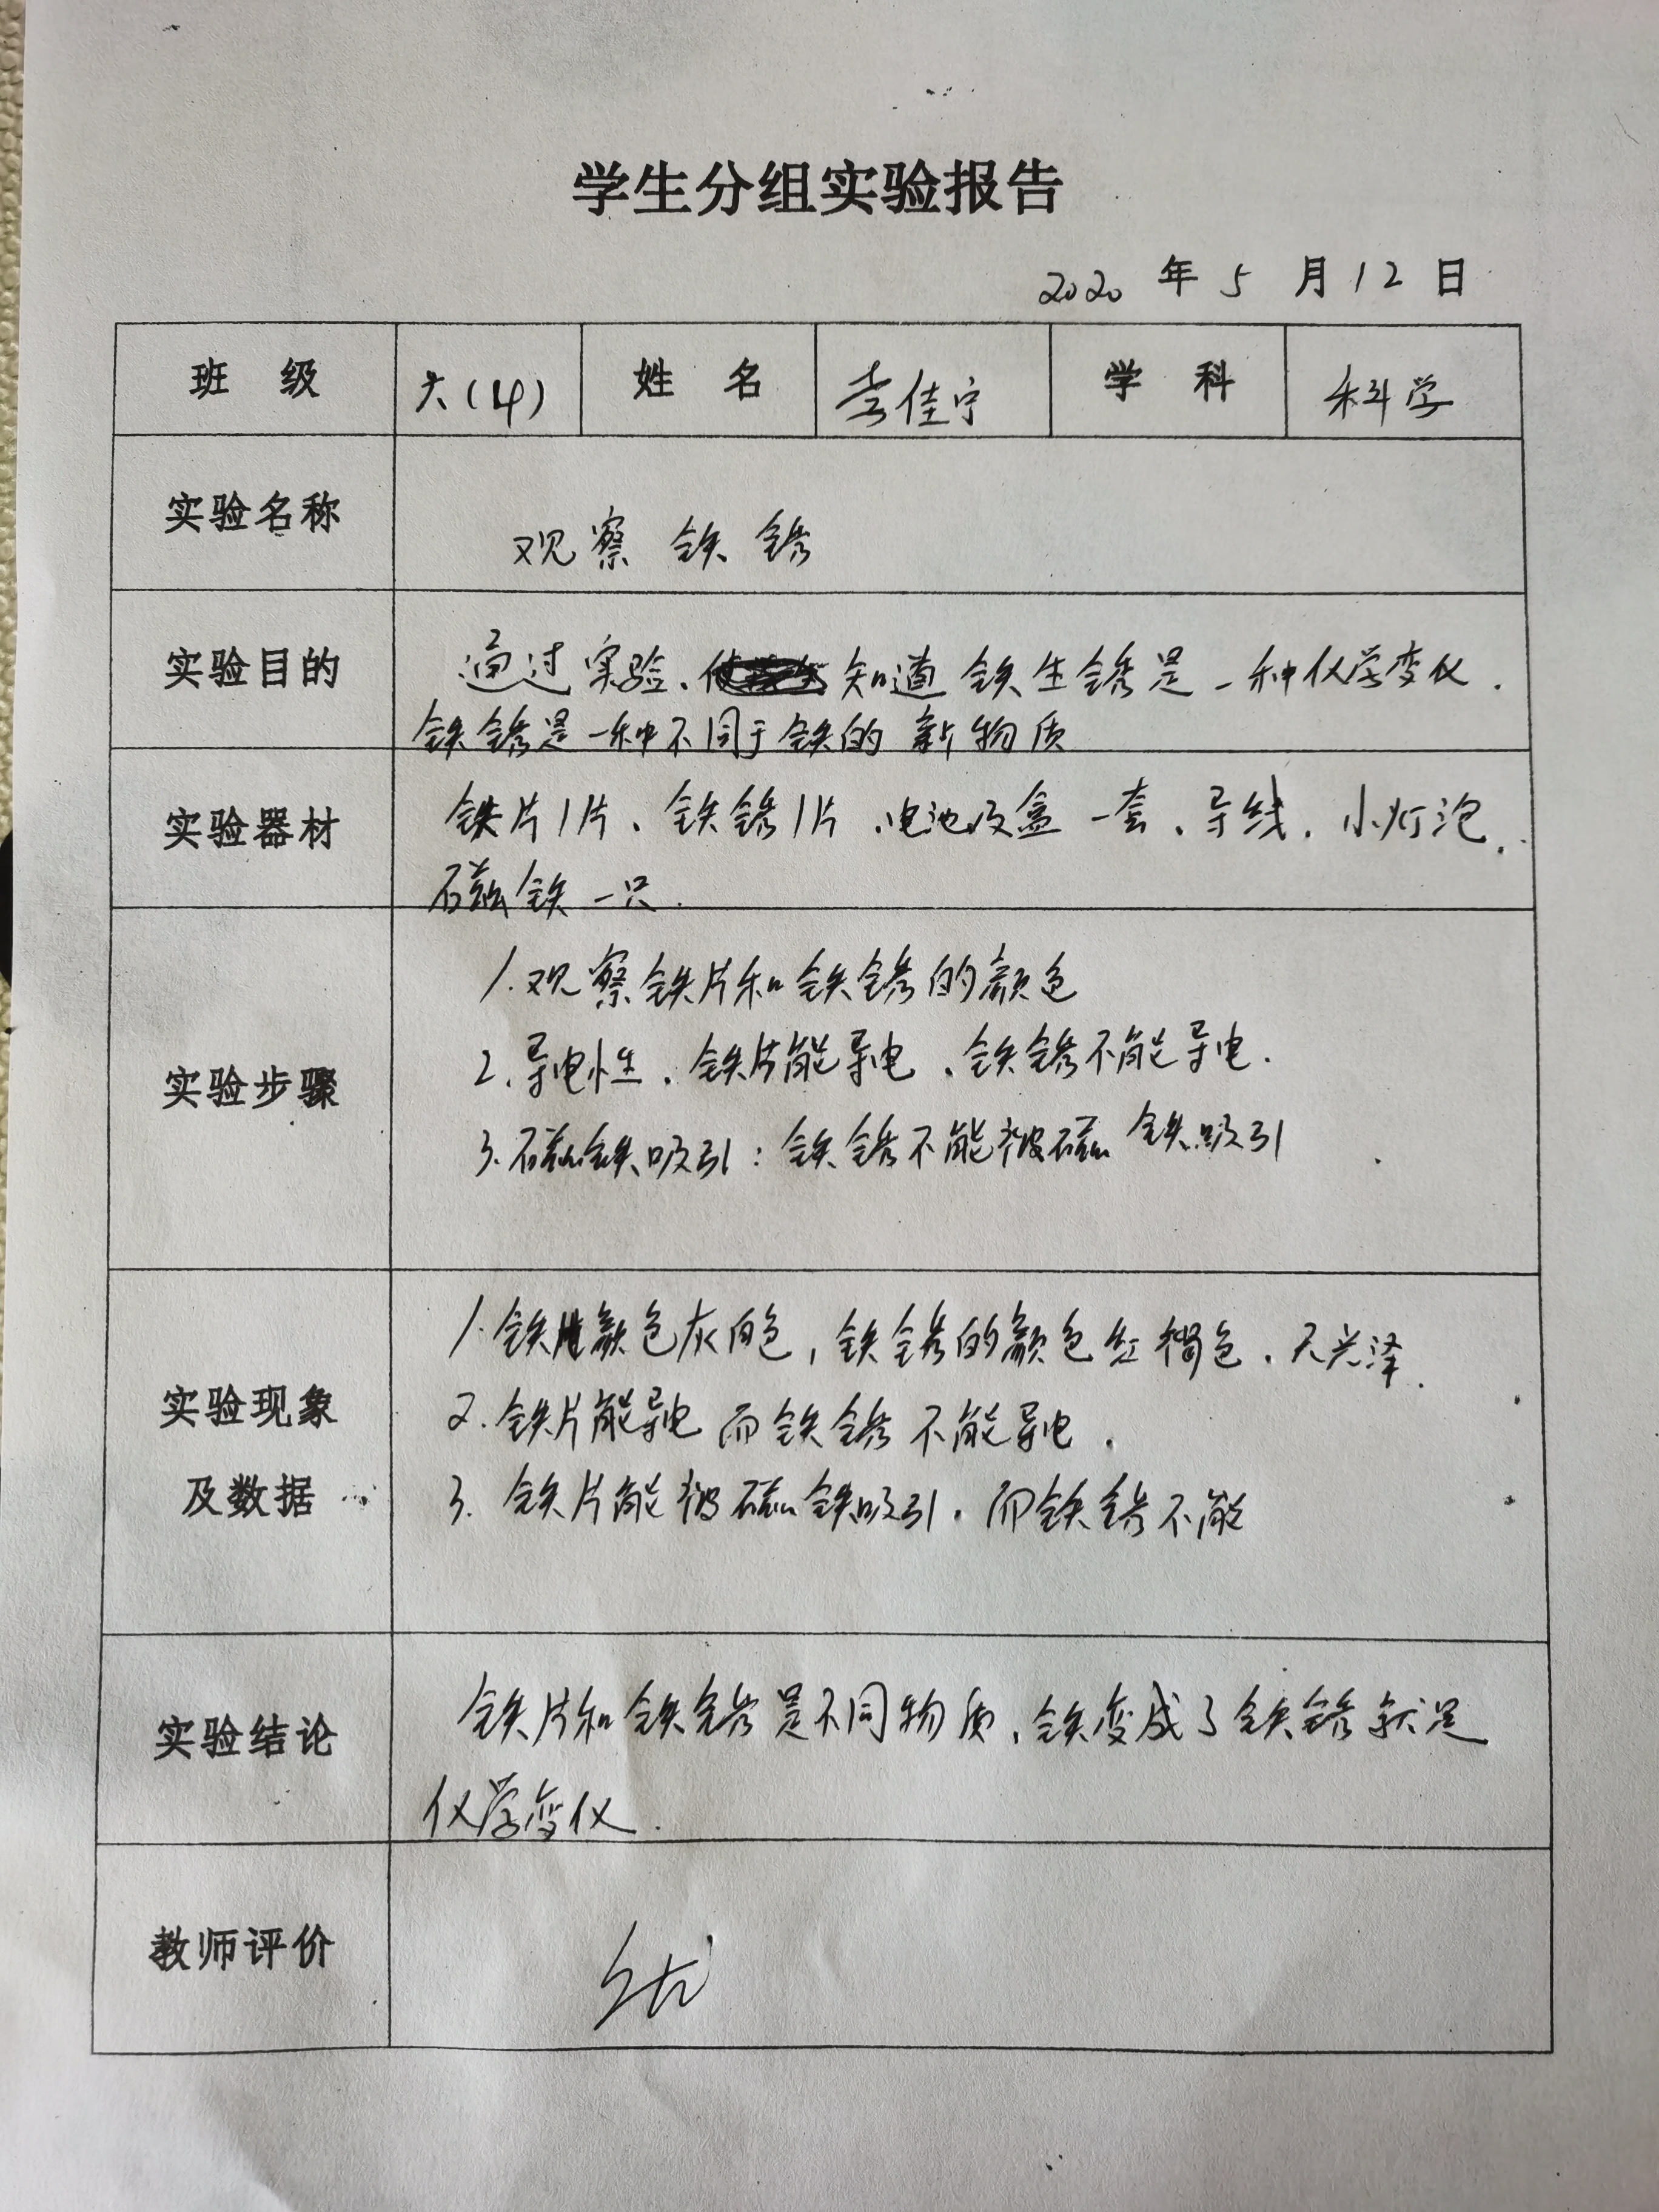 学生分组实验报告
2020 年 5 月 12 日
班 级 六(4) 姓 名 李佳宁 学 科 科学
实验名称 观察铁锈
实验目的 通过实验、知道铁生锈是一种化学变化.
铁锈是一种不同于铁的新物质
实验器材 铁片1片、铁锈1片、电池及盒一套、导线、小灯泡.
磁铁一只.
实验步骤
1.观察铁片和铁锈的颜色
2.导电性、铁片能导电、铁锈不能导电.
3.磁铁吸引:铁锈不能被磁铁吸引
实验现象
及数据
1.铁片颜色灰白色,铁锈的颜色红褐色、无光泽.
2.铁片能导电而铁锈不能导电.
3.铁片能被磁铁吸引.而铁锈不能
实验结论 铁片和铁锈是不同物质、铁变成了铁锈就是
化学变化.
教师评价 优